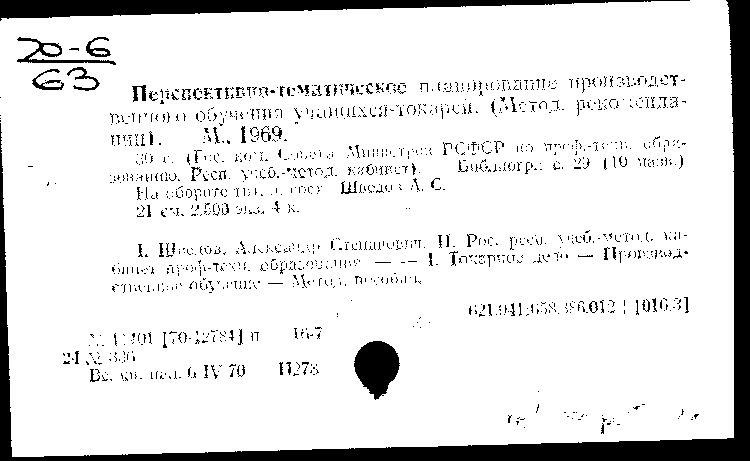 20-6
63
Перспективно-тематическое планирование производст-
венного обучения учащихся-токарей. (Метод. рекоменда-
ции). М., 1969.
30 с. (Гос. ком. Совета Министров РСФСР по проф.-техн. обра-
зованию. Респ. учеб.-метод. кабинет). Библиогр.: с. 29 (10 назв.)
На обороте тит. л. сост. Шведов А. С.
21 см. 2.500 экз. 4 к.
I. Шведов, Александр Степанович. II. Рос. респ. учеб.-метод. ка-
бинет проф-техн. образования. — — 1. Токарное дело — Производ-
ственное обучение — Метод. пособия.
[1016.3]
№ [70-12784] п 16-7
24 №
Вс. кн. пал. 6 IV 70 П278